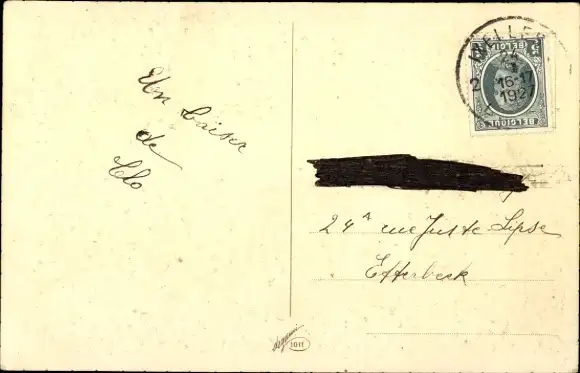 Un baiser
de
Clo
MELLE
16-17
192
BELGIQUE
24A rue Juste Lipse
Etterbeek
1011